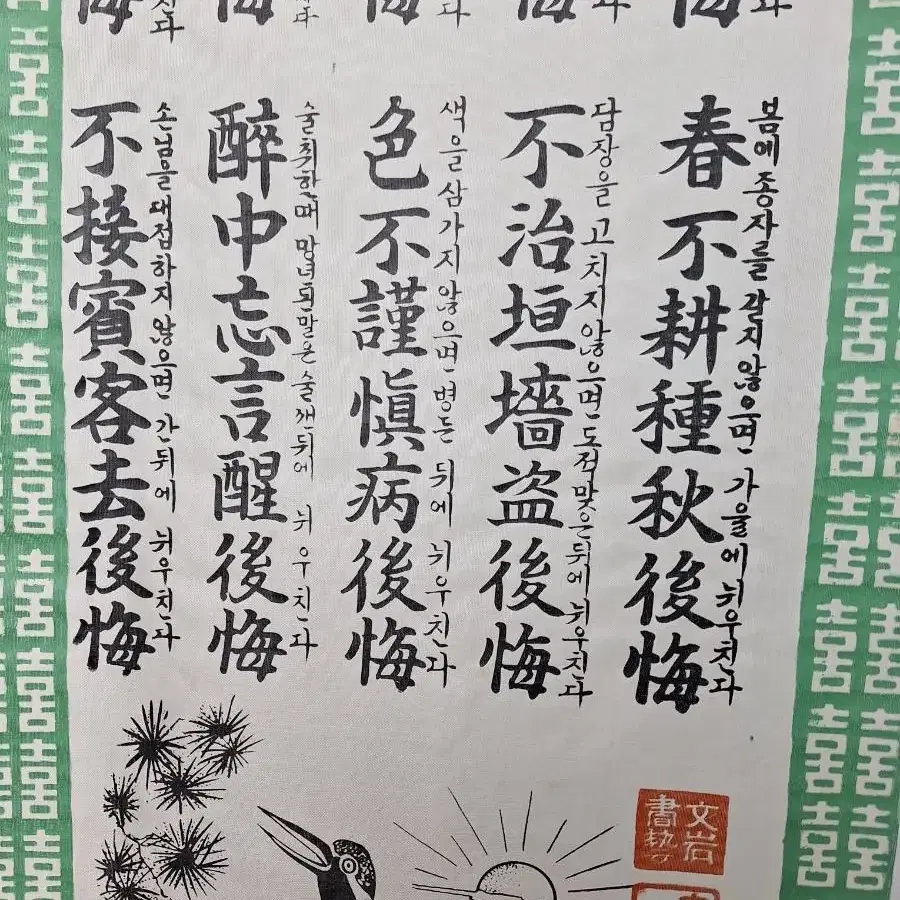 春不耕種秋後悔
봄에 종자를 갈지않으면 가을에 뉘우친다
不治垣墻盜後悔
담장을 고치지 않으면 도적맞은뒤에 뉘우친다
色不謹愼病後悔
색을 삼가지않으면 병든 뒤에 뉘우친다
醉中忘言醒後悔
술취한때 망녀된말은 술깬뒤에 뉘우친다
不接賓客去後悔
손님을대접하지 않으면 간뒤에 뉘우친다
文岩
書